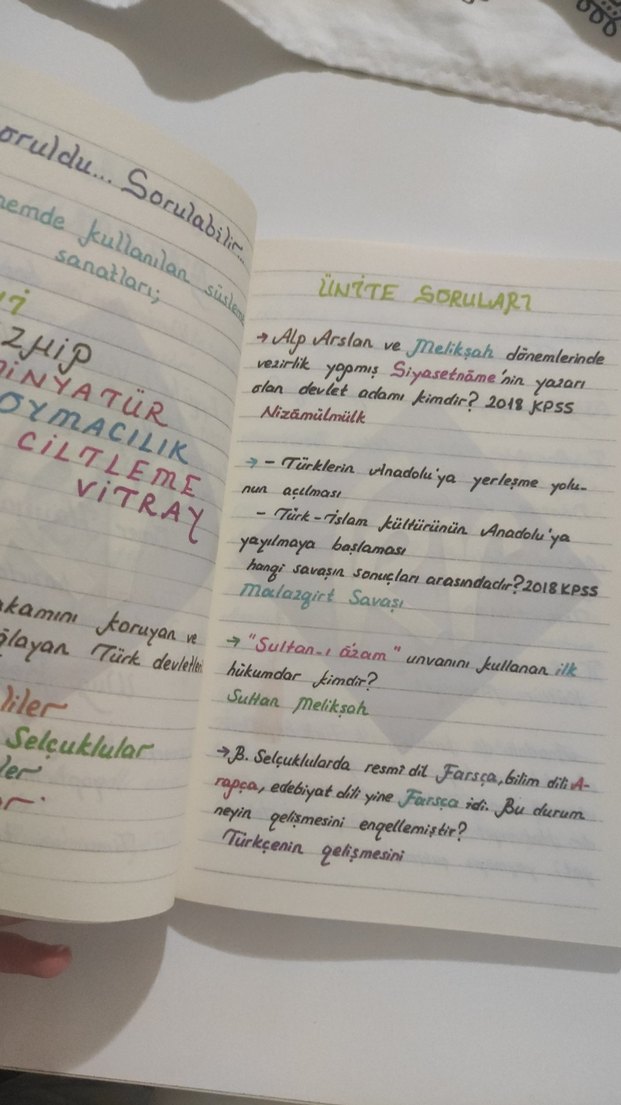 oruldu... Sorulabilir...
kullanılan süsleme
sanatları;
MİNYATÜR
OYMACILIK
CİLTLEME
VİTRAY
koruyan ve
Türk devletleri
Selçuklular
ÜNİTE SORULARI
→ Alp Arslan ve Melikşah dönemlerinde
vezirlik yapmış Siyasetnâme'nin yazarı
olan devlet adamı kimdir? 2018 KPSS
Nizâmülmülk
→ - Türklerin Anadolu'ya yerleşme yolu-
nun açılması
- Türk-İslam kültürünün Anadolu'ya
yayılmaya başlaması
hangi savaşın sonuçları arasındadır? 2018 KPSS
Malazgirt Savaşı
→ "Sultan-ı âzam" unvanını kullanan ilk
hükümdar kimdir?
Sultan Melikşah
→ B. Selçuklularda resmî dil Farsça, bilim dili A-
rapça, edebiyat dili yine Farsça idi. Bu durum
neyin gelişmesini engellemiştir?
Türkçenin gelişmesini